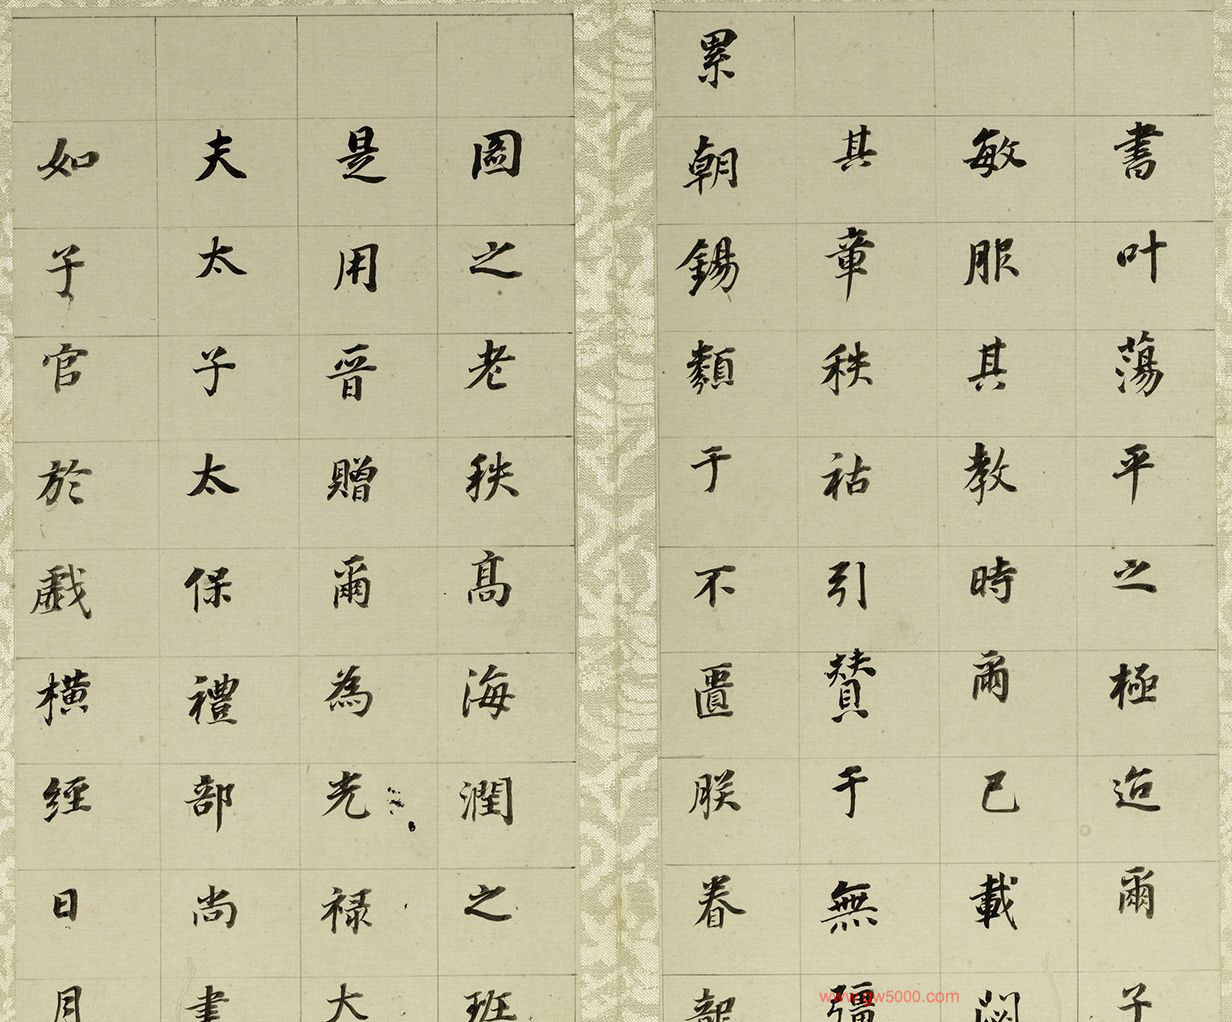 書叶蕩平之極迨爾子
敏服其教時爾已載
其章秩祜引贊于無彊
累朝錫類于不匱朕眷
圖之老秩高海潤之班
是用晉贈爾為光祿大
夫太子太保禮部尚書
如子官於戲橫經日月
www.qw5000.com